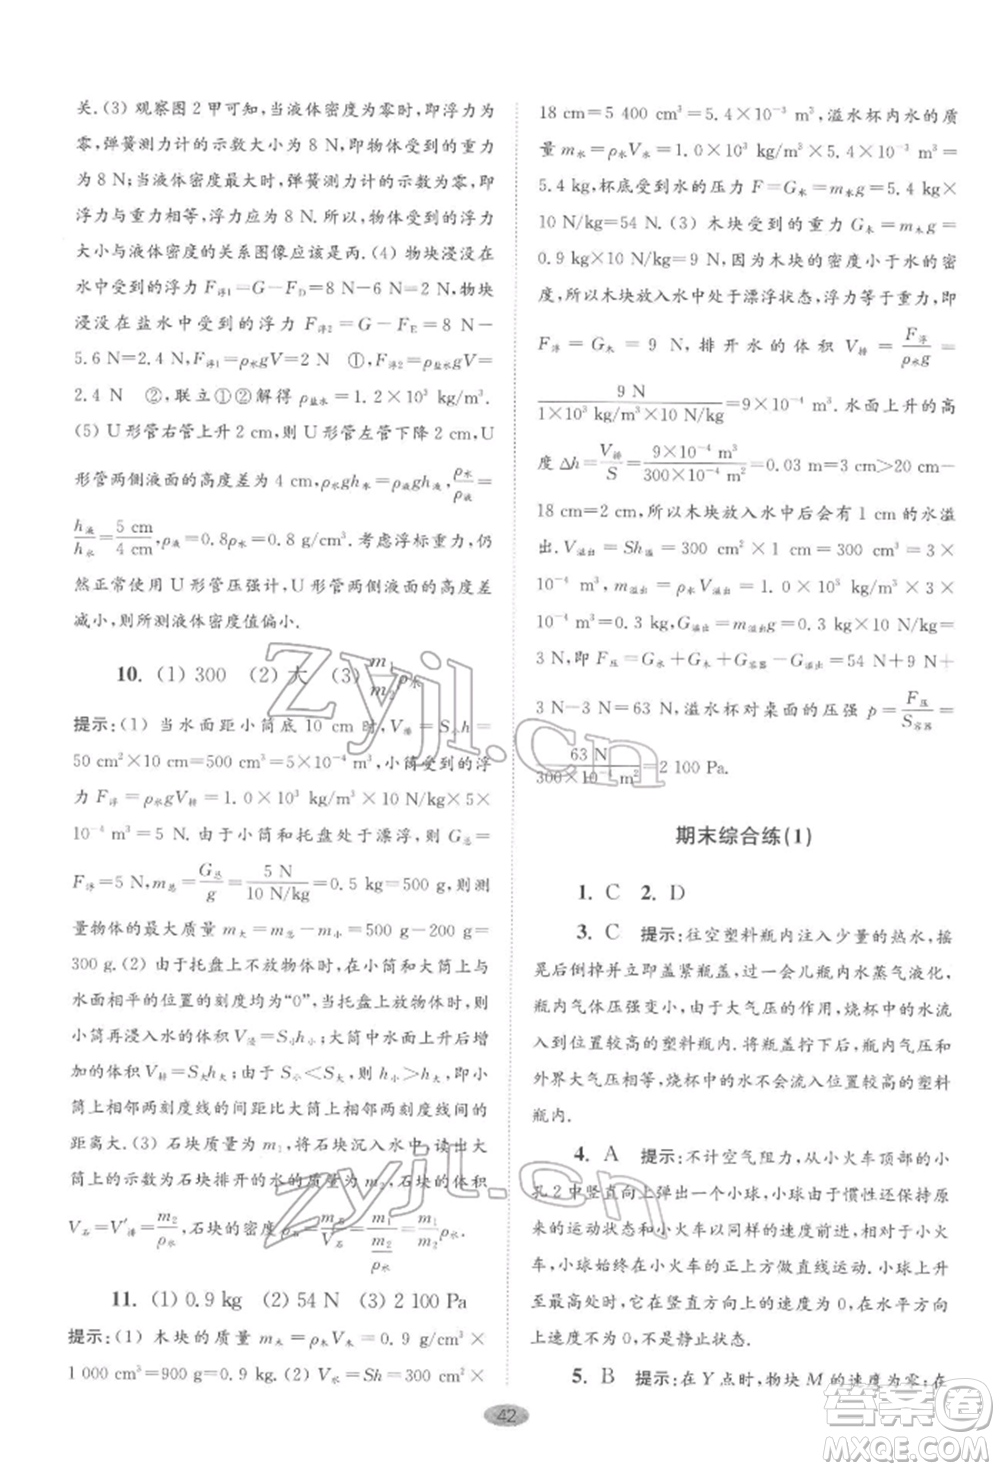 关. (3) 观察图 2 甲可知,当液体密度为零时,即浮力为
零,弹簧测力计的示数大小为 8 N,即物体受到的重力
为 8 N;当液体密度最大时,弹簧测力计的示数为零,即
浮力与重力相等,浮力应为 8 N. 所以,物体受到的浮力
大小与液体密度的关系图像应该是丙. (4) 物块浸没在
水中受到的浮力 F浮1=G-FD=8 N-6 N=2 N,物块
浸没在盐水中受到的浮力 F浮2=G-FE=8 N-
5.6 N=2.4 N,F浮1=ρ水gV=2 N ①,F浮2=ρ盐水gV=
2.4 N ②,联立①②解得 ρ盐水=1.2×10³ kg/m³.
(5) U 形管右管上升 2 cm,则 U 形管左管下降 2 cm,U
形管两侧液面的高度差为 4 cm,ρ水gh水=ρ液gh液,ρ水/ρ液=
h液/h水=5 cm/4 cm,ρ液=0.8ρ水=0.8 g/cm³. 考虑浮标重力,仍
然正常使用 U 形管压强计,U 形管两侧液面的高度差
减小,则所测液体密度值偏小.
10. (1) 300 (2) 大 (3) m₁/m₂ ρ水
提示:(1) 当水面距小筒底 10 cm 时,V排=S小h=
50 cm²×10 cm=500 cm³=5×10⁻⁴ m³,小筒受到的浮
力 F浮=ρ水gV排=1.0×10³ kg/m³×10 N/kg×5×
10⁻⁴ m³=5 N. 由于小筒和托盘处于漂浮,则有 G总=
F浮=5 N,m总=G总/g=5 N/10 N/kg=0.5 kg=500 g,则测
量物体的最大质量 m大=m总-m小=500 g-200 g=
300 g. (2) 由于托盘上不放物体时,小筒和大筒上与
水面相平的位置的刻度均为“0”,当托盘上放物体时,
小筒再浸入水的体积 V浸=S小h小;大筒中水面上升增
加的体积 V排=S大h大;由于 S小<S大,则 h小>h大,即小
筒上相邻两刻度线的间距比大筒上相邻刻度线间的
距离大. (3) 石块质量为 m₁,将石块沉入水中,读出水
的示数为石块排开水的质量为 m₂,石块的体积
V石=V′排=m₂/ρ水,石块的密度 ρ石=m石/V石=m₁/(m₂/ρ水)=m₁/m₂ ρ水.
11. (1) 0.9 kg (2) 54 N (3) 2 100 Pa
提示:(1) 木块的质量 m木=ρ木V木=0.9 g/cm³×
1 000 cm³=900 g=0.9 kg. (2) V水=Sh=300 cm²×
18 cm=5 400 cm³=5.4×10⁻³ m³,溢水杯内水的质
量 m水=ρ水V水=1.0×10³ kg/m³×5.4×10⁻³ m³=
5.4 kg,杯底受到水的压力 F=G水=m水g=5.4 kg×
10 N/kg=54 N. (3) 木块受到的重力 G木=m木g=
0.9 kg×10 N/kg=9 N,因为木块的密度小于水的密
度,所以木块放入水中处于漂浮状态,浮力等于重力,即
F浮=G木=9 N,排开水的体积 V排=F浮/ρ水g=
9 N/1×10³ kg/m³×10 N/kg=9×10⁻⁴ m³. 水面上升的高
度 Δh=V排/S=9×10⁻⁴ m³/300×10⁻⁴ m²=0.03 m=3 cm>20 cm-
18 cm=2 cm,所以木块放入水中后会有 1 cm 的水溢
出. V溢出=Sh溢=300 cm²×1 cm=300 cm³=3×
10⁻⁴ m³,m溢出=ρ水V溢出=1.0×10³ kg/m³×3×
10⁻⁴ m³=0.3 kg,G溢出=m溢出g=0.3 kg×10 N/kg=
3 N,F压=G水+G木+G容器-G溢出=54 N+9 N+
3 N-3 N=63 N,溢水杯对桌面的压强 p=F压/S容器=
63 N/300×10⁻⁴ m²=2 100 Pa.
期末综合练(1)
1. C 2. D
3. C 提示:往空塑料瓶内注入少量的热水,摇
晃后倒掉并立即盖紧瓶盖,过一会儿瓶内水蒸气液化,
瓶内气体压强变小,由于大气压的作用,烧杯中的水流
入位置较高的塑料瓶内. 将瓶盖拧下后,瓶内气压和
外界大气压相等,烧杯中的水不会流入位置较高的塑料
瓶内.
4. A 提示:不计空气阻力,从小火车顶部的小
孔 2 中竖直向上弹出一个小球,小球由于惯性还保持原
来的运动状态和小火车以同样的速度前行,所以对于小
球始终在小火车的正上方做直线运动. 小球上升至
最高处时,它在竖直方向上的速度为 0,在水平方向
上速度不为 0,不是静止状态.
5. B 提示:在 Y 点时,物块 M 的速度为零;在
42
zyjl.cn
zyjl.cn
答案圈
MXQE.COM